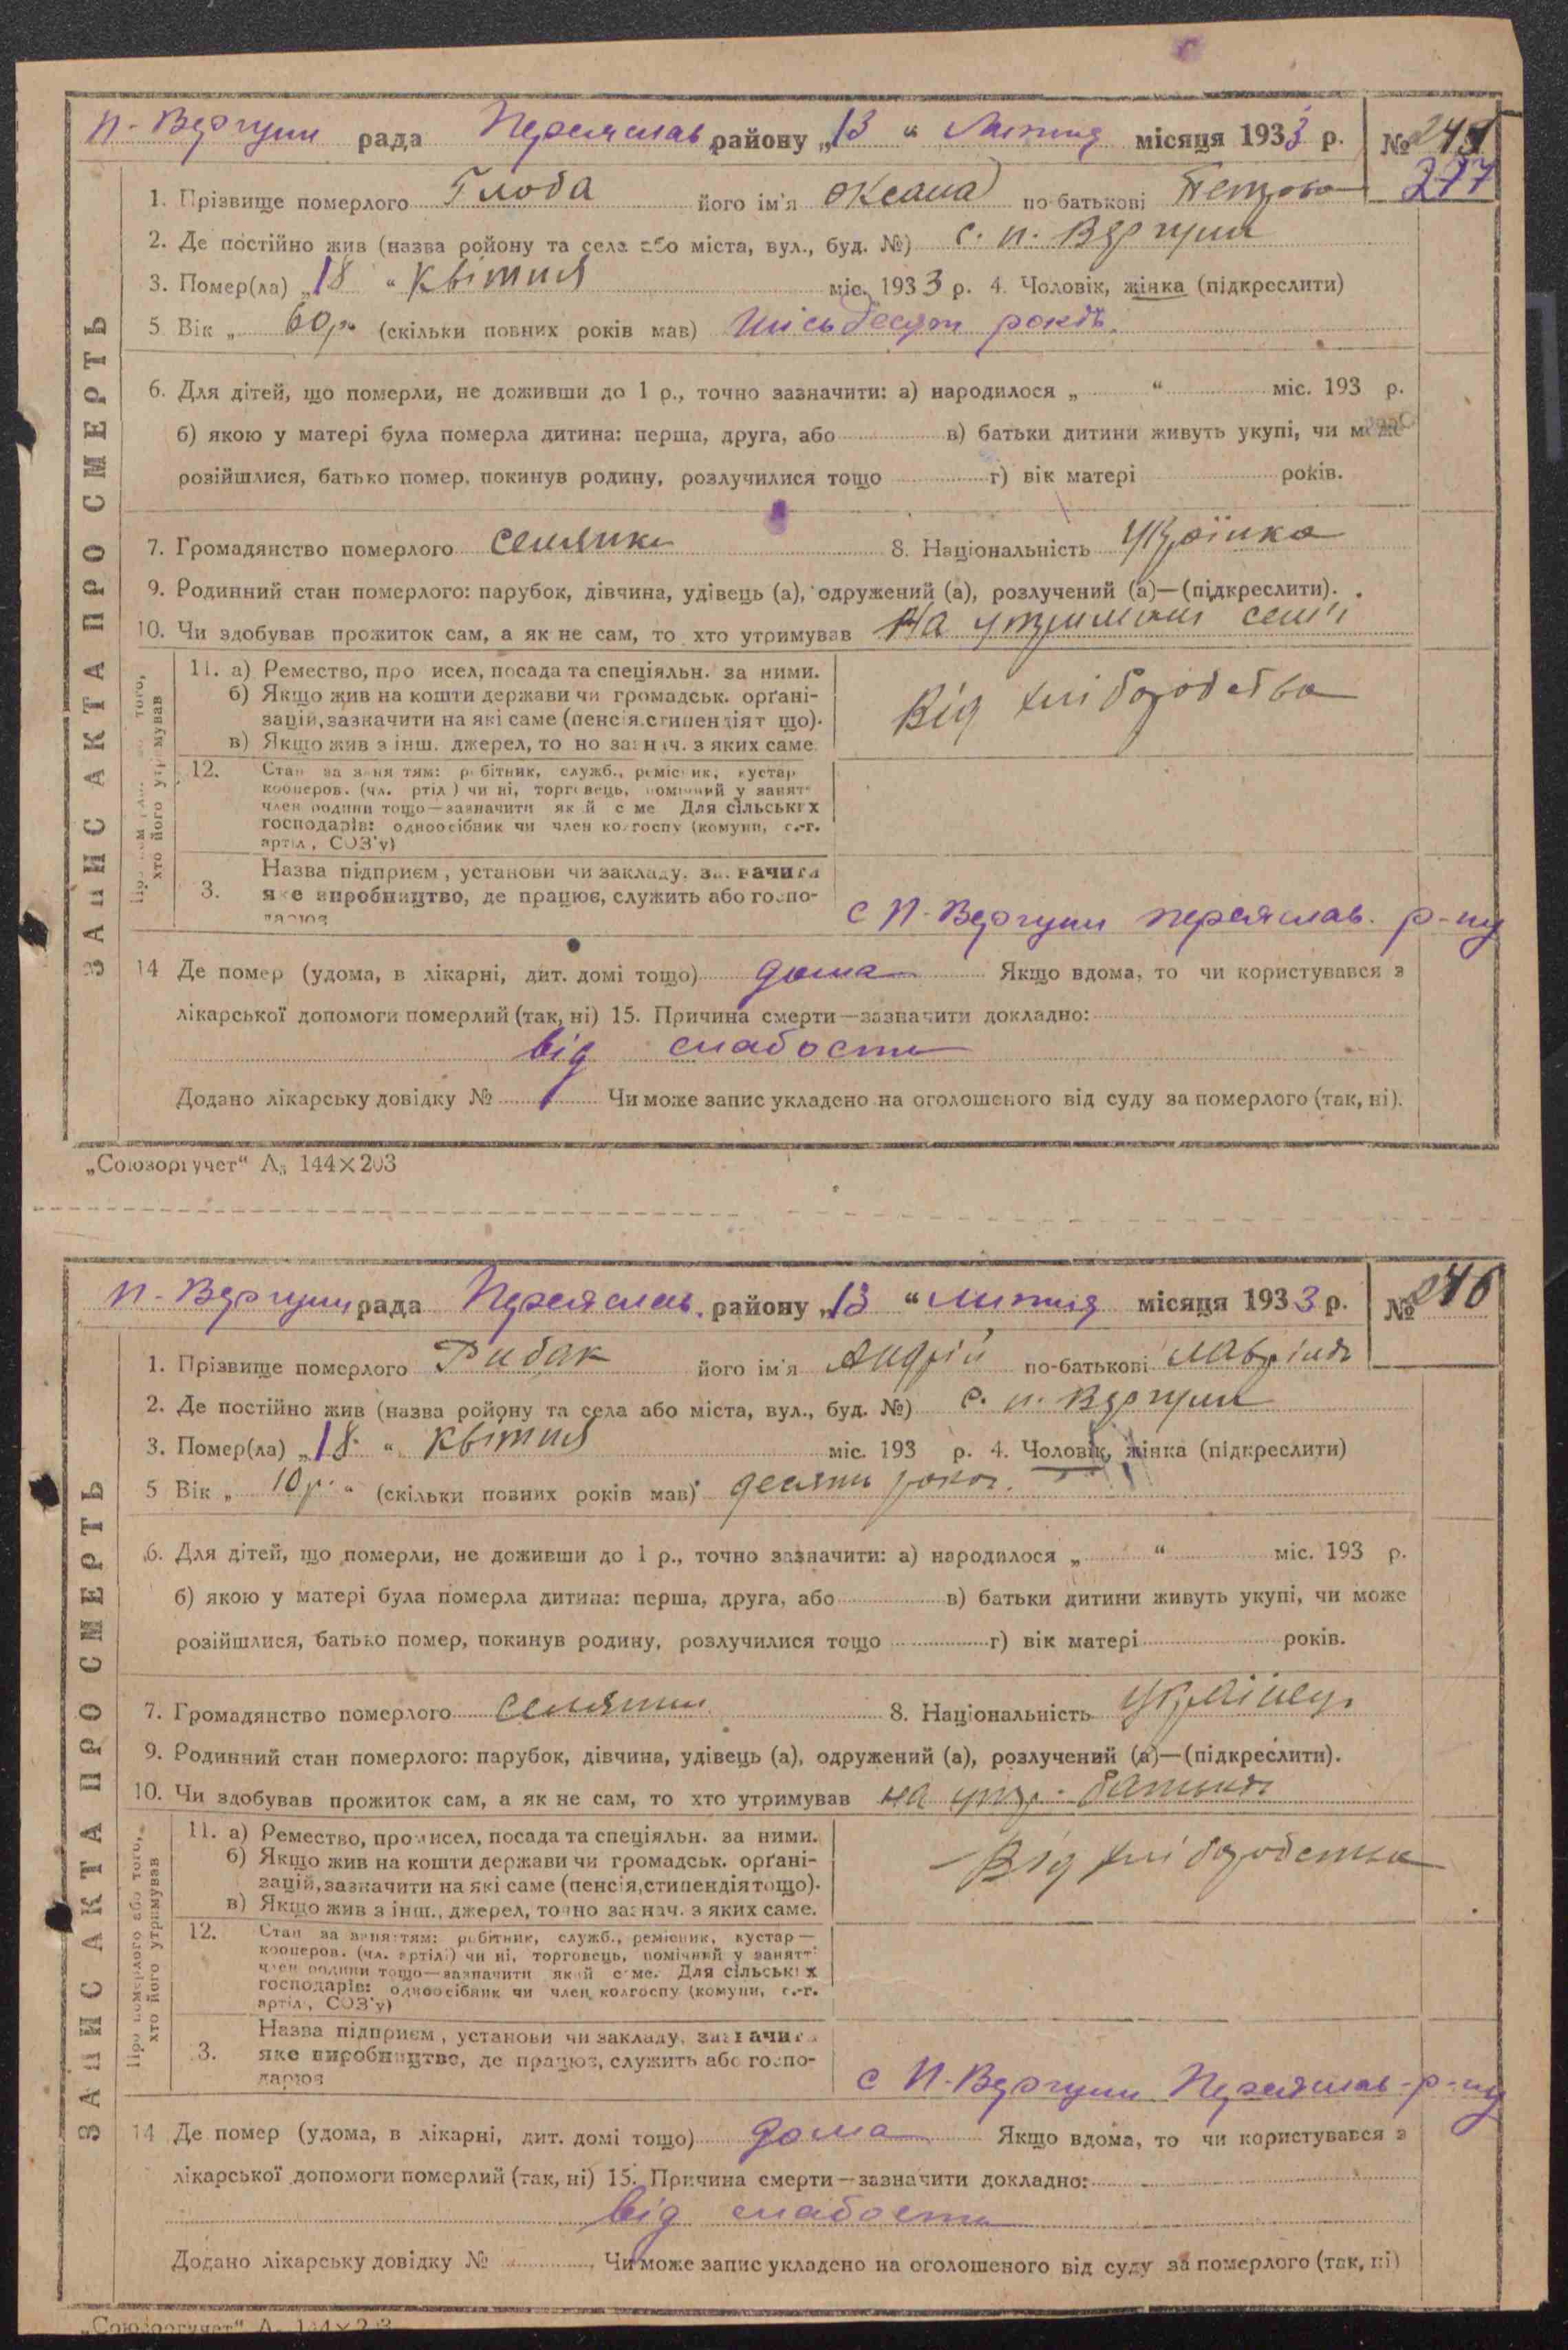 п-Вергуни рада Переяслав району „13 “ Липня місяця 1933 р. № 245
277
1. Прізвище померлого Глоба його ім'я Оксана по батькові Петрова
2. Де постійно жив (назва ройону та села або міста, вул., буд. №) с. п. Вергуни
3. Помер(ла) „18 “ Квітня міс. 1933 р. 4. Чоловік, жінка (підкреслити)
5 Вік „ 60р. (скільки повних років мав) шісьдесят років.
6. Для дітей, що померли, не доживши до 1 р., точно зазначити: а) народилося „ “ міс. 193 р.
б) якою у матері була померла дитина: перша, друга, або в) батьки дитини живуть укупі, чи може
розійшлися, батько помер, покинув родину, розлучилися тощо г) вік матері років.
7. Громадянство померлого селянка 8. Національність Українка
9. Родинний стан померлого: парубок, дівчина, удівець (а), одружений (а), розлучений (а)—(підкреслити).
10. Чи здобував прожиток сам, а як не сам, то хто утримував На утриманні семї
11. а) Ремество, про исел, посада та спеціяльн. за ними.
б) Якщо жив на кошти держави чи громадськ. орґані-
зацій, зазначити на які саме (пенсія, стипендіят що).
в) Якщо жив з інш. джерел, то но зазнач. з яких саме
Від хліборобства
12. Стан за заняттям: робітник, служб., ремісник, кустар
кооперов. (чл. ртіл ) чи ні, торговець, помічний у занятт
член родини тощо—зазначити який с ме Для сільських
господарів: одноосібник чи член колгоспу (комуни, с.-г.
артіл, СОЗ'у)
3. Назва підприєм, установи чи закладу, зазначити
яке виробництво, де працює, служить або госпо-
дарює
с П-Вергуни Переяслав. р-ну
14 Де помер (удома, в лікарні, дит. домі тощо) дома Якщо вдома, то чи користувався з
лікарської допомоги померлий (так, ні) 15. Причина смерти—зазначити докладно:
від слабости
Додано лікарську довідку № Чи може запис укладено на оголошеного від суду за померлого (так, ні).
ЗАПИС АКТА ПРО СМЕРТЬ
„Союзоргучет“ А₅ 144×203
п-Вергуни рада Переяслав. району „13 “ липня місяця 1933 р. № 246
1. Прізвище померлого Рибак його ім'я Андрій по-батькові
2. Де постійно жив (назва ройону та села або міста, вул., буд. №) с. п. Вергуни
3. Помер(ла) „18. “ Квітня міс. 193 р. 4. Чоловік, жінка (підкреслити)
5 Вік „ 10 р. “ (скільки повних років мав) десять
6. Для дітей, що померли, не доживши до 1 р., точно зазначити: а) народилося „ “ міс. 193 р.
б) якою у матері була померла дитина: перша, друга, або в) батьки дитини живуть укупі, чи може
розійшлися, батько помер, покинув родину, розлучилися тощо г) вік матері років.
7. Громадянство померлого селянин 8. Національність Українець
9. Родинний стан померлого: парубок, дівчина, удівець (а), одружений (а), розлучений (а)—(підкреслити).
10. Чи здобував прожиток сам, а як не сам, то хто утримував на утр. батьків
11. а) Ремество, промисел, посада та спеціяльн. за ними.
б) Якщо жив на кошти держави чи громадськ. орґані-
зацій, зазначити на які саме (пенсія, стипендія тощо).
в) Якщо жив з інш., джерел, точно зазнач. з яких саме.
Від хліборобства
12. Стан за заняттям: робітник, служб., ремісник, кустар—
кооперов. (чл. артілі) чи ні, торговець, помічний у занятт
член родини тощо—зазначити який саме. Для сільських
господарів: одноосібник чи член колгоспу (комуни, с.-г.
артіл, СОЗ'у)
3. Назва підприєм, установи чи закладу, зазначити
яке виробництво, де працює, служить або госпо-
дарює
с П-Вергуни Переяслав-р-ну
14 Де помер (удома, в лікарні, дит. домі тощо) дома Якщо вдома, то чи користувався з
лікарської допомоги померлий (так, ні) 15. Причина смерти—зазначити докладно:
від слабости
Додано лікарську довідку № Чи може запис укладено на оголошеного від суду за померлого (так, ні)
ЗАПИС АКТА ПРО СМЕРТЬ
Про померлого або того,
хто його утримував
„Союзоргучет“ А 144×203